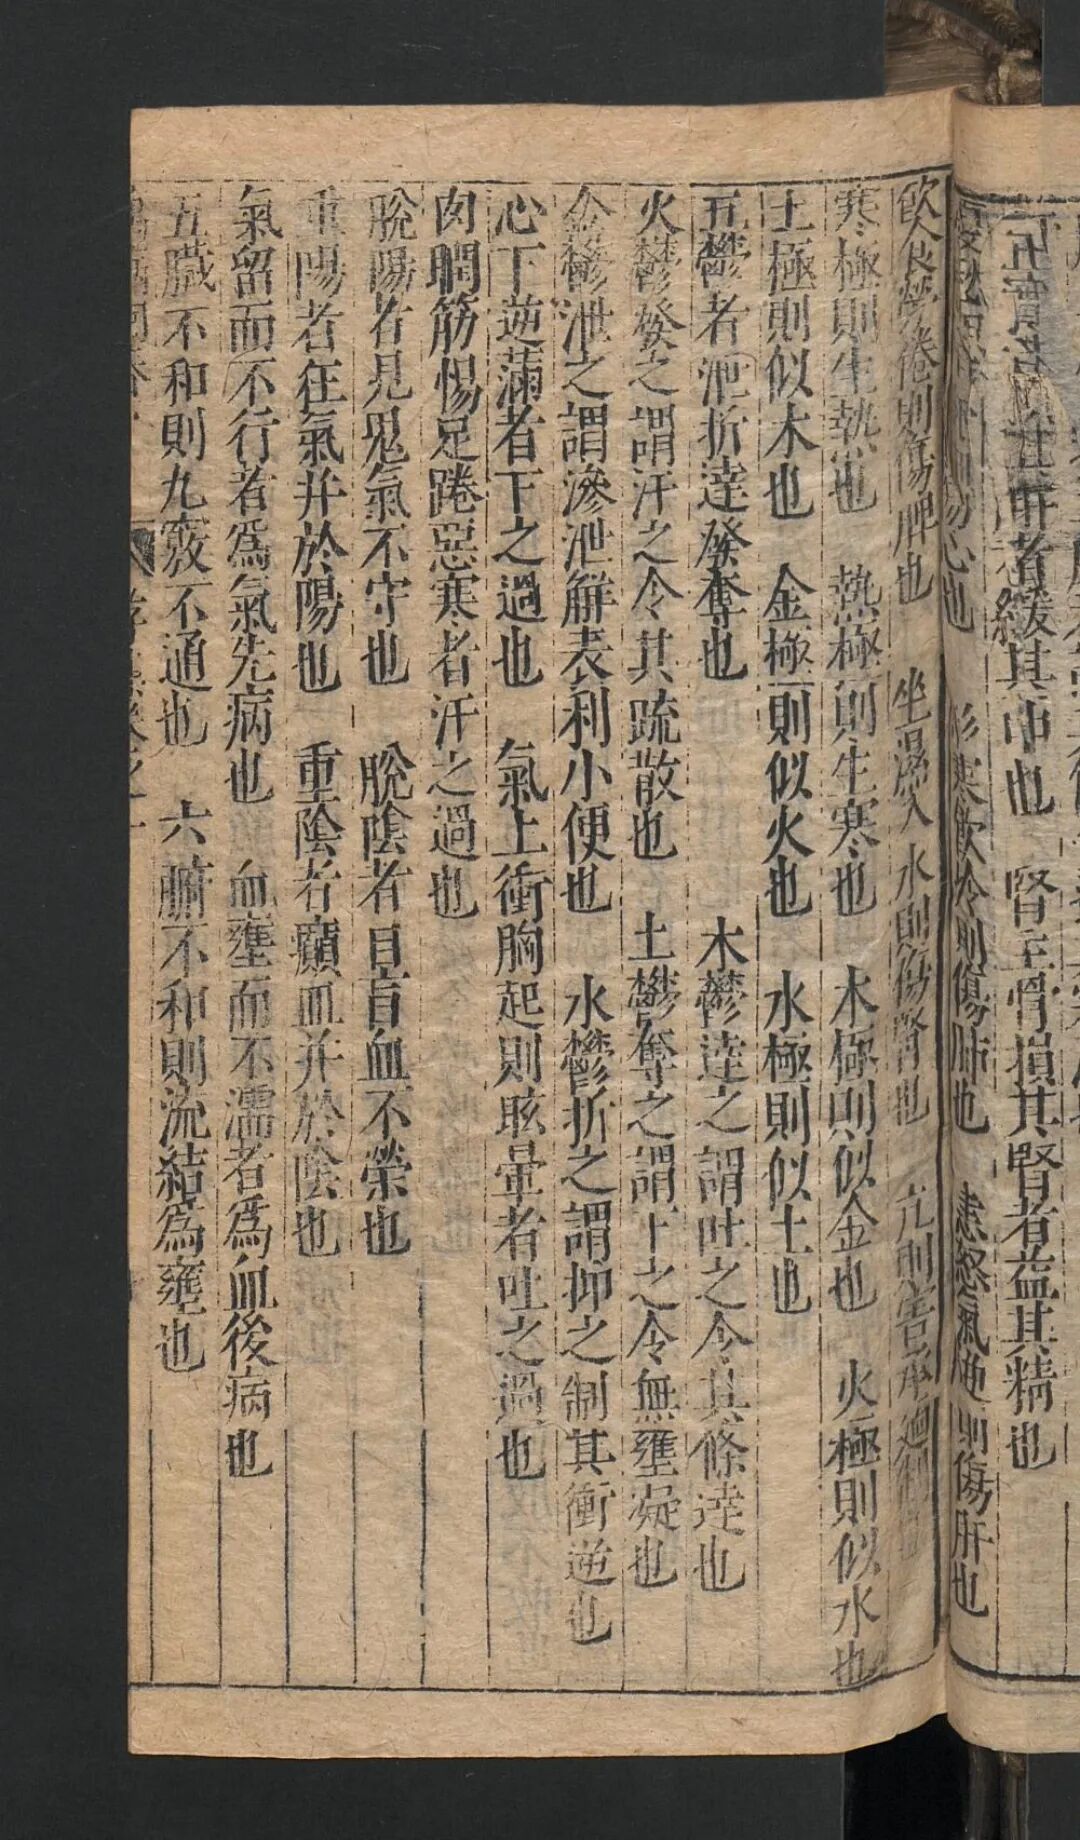 正實
肝者緩其中也　腎主骨損其腎者益其精也
傷心也　形寒飲冷則傷肺也　恚怒氣逆則傷肝也
飲食勞倦則傷脾也　坐濕入水則傷腎也　亢則害承廼制
寒極則生熱也　熱極則生寒也　木極則似金也　火極則似水也
土極則似木也　金極則似火也　水極則似土也
五鬱者泄折達發奪也　木鬱達之謂吐之令其條達也
火鬱發之謂汗之令其疏散也　土鬱奪之謂下之令無壅凝也
金鬱泄之謂滲泄解表利小便也　水鬱折之謂抑之制其衝逆也
心下逆滿者下之過也　氣上衝胸起則眩暈者吐之過也
肉瞤筋惕足踡惡寒者汗之過也
脫陽者見鬼氣不守也　脫陰者目盲血不榮也
重陽者狂氣并於陽也　重陰者癲血并於陰也
氣留而不行者爲氣先病也　血壅而不濡者爲血後病也
五臟不和則九竅不通也　六腑不和則流結爲壅也